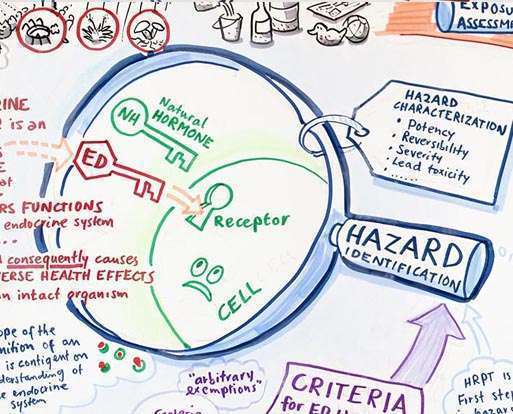 EXPOSU
ASSESSME
HAZARD
CHARACTERIZATION
• Potency
• Reversibility
• Severity
• Lead toxicity
• .....
Natural
HORMONE
NH
RINE
is an
ED
at
RS FUNCTIONS
endocrine system
...
consequently causes
VERSE HEALTH EFFECTS
an intact organism
Receptor
CELL
HAZARD
IDENTIFICATION
ope of the
nition of an
is contigent on
derstanding of
e endocrine
system
"arbitrary
exemptions"
CRITERIA
for ED
HRPT is
First step